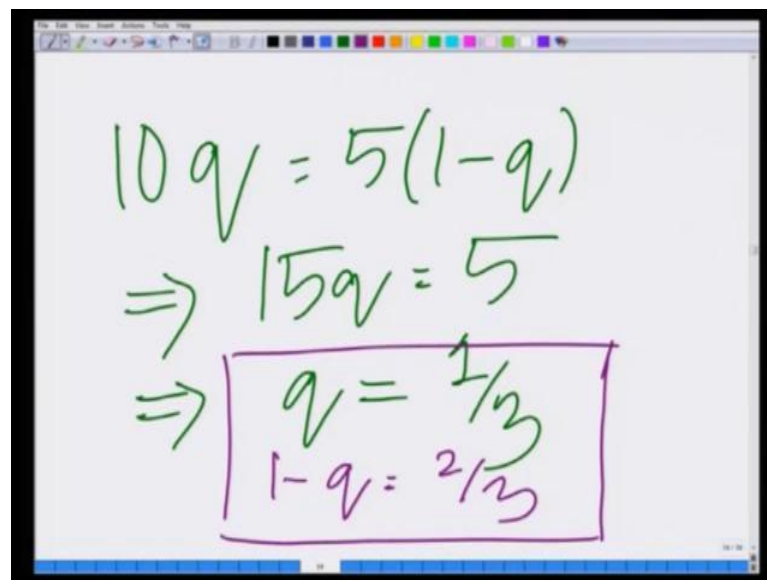 File Edit View Insert Actions Tools Help
10q = 5(1-q)
⇒ 15q = 5
⇒ q = 1/3
1-q = 2/3